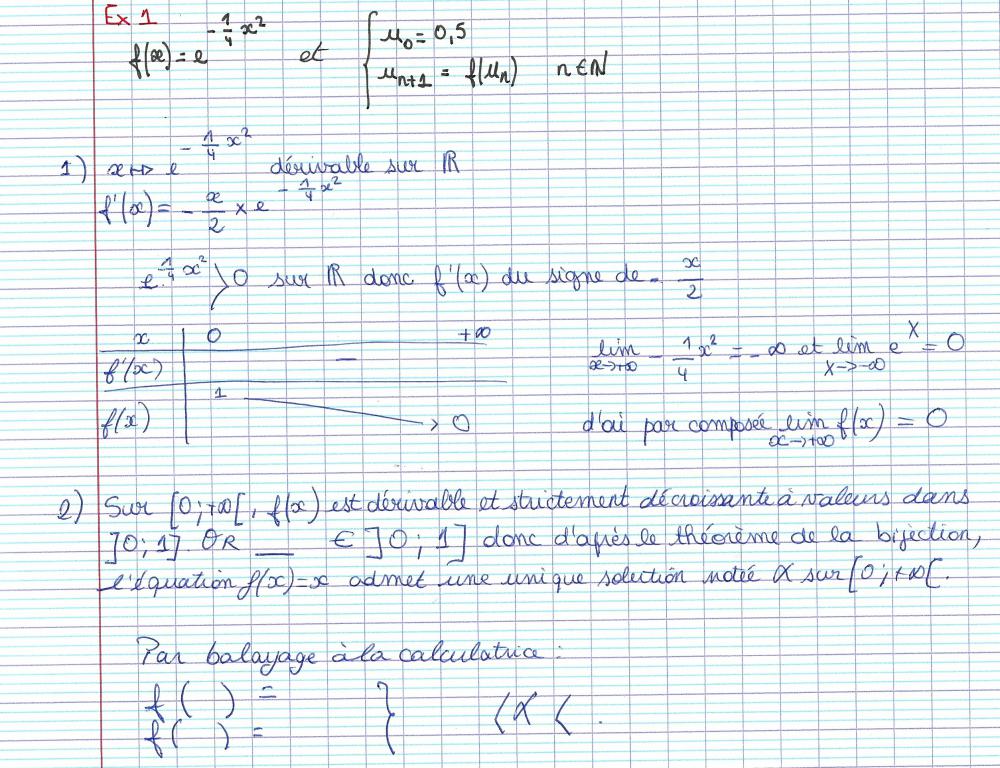 Ex 1
f(x) = e^{-\frac{1}{4}x^2} et { u_0 = 0,5
u_{n+1} = f(u_n) n ∈ ℕ
1) x ↦ e^{-\frac{1}{4}x^2} dérivable sur ℝ
f'(x) = -\frac{x}{2} × e^{-\frac{1}{4}x^2}
e^{-\frac{1}{4}x^2} > 0 sur ℝ donc f'(x) du signe de -\frac{x}{2}
x 0 +∞
f'(x) -
f(x) 1 → 0
lim_{x→+∞} -\frac{1}{4}x^2 = -∞ et lim_{X→-∞} e^X = 0
d'où par composée lim_{x→+∞} f(x) = 0
2) Sur [0;+∞[, f(x) est dérivable et strictement décroissante à valeurs dans
]0;1]. OR __ ∈ ]0;1] donc d'après le théorème de la bijection,
l'équation f(x)=x admet une unique solution notée α sur [0;+∞[.
Par balayage à la calculatrice :
f( ) =
f( ) = } < α < .